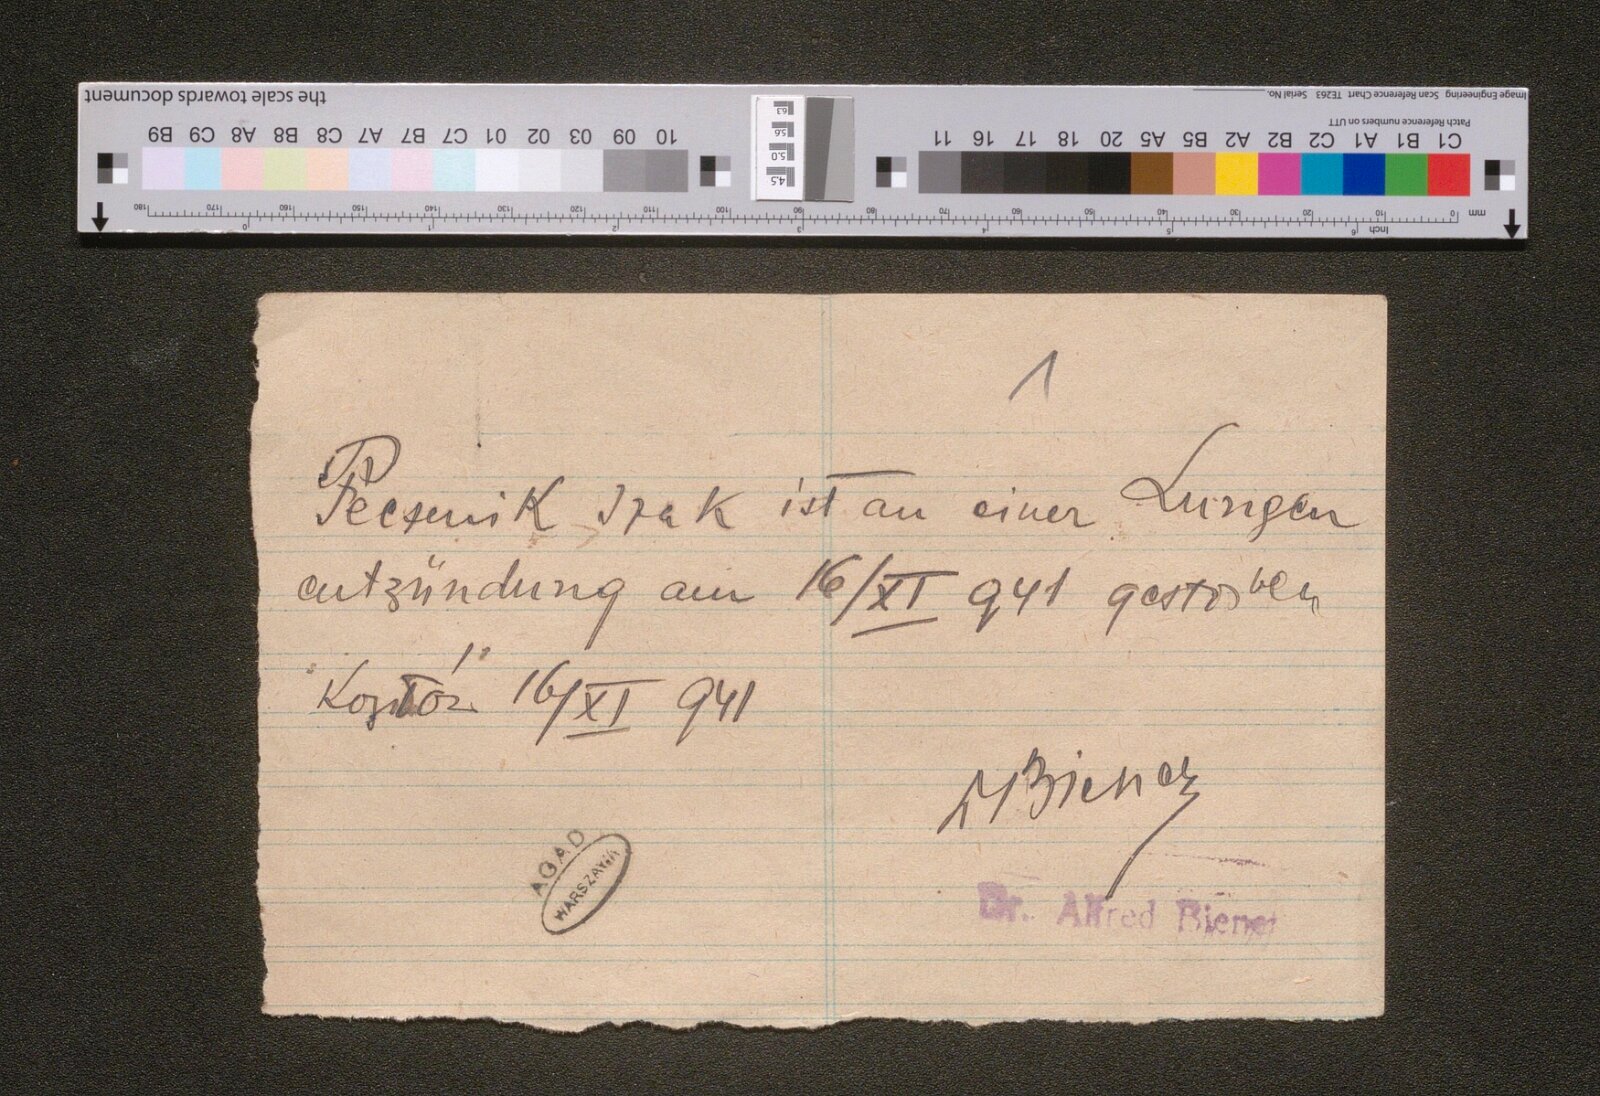 the scale towards document
B9 C9 A8 B8 C8 A7 B7 C7 01 02 03 09 10
6.3
5.6
5.0
4.5
11 16 17 18 20 A5 B5 A2 B2 C2 A1 B1 C1
Image Engineering Scan Reference Chart TE263 Serial No.
Patch Reference numbers on UTT
180 170 160 150 140 130 120 110 100 90 80 70 60 50 40 30 20 10 0 mm
0 1 2 3 4 5 6 Inch
1
Peczenik Izak ist an einer Lungen
entzündung am 16/XI 941 gestorben
16/XI 941
Biener
AGAD
WARSZAWA
Dr. Alfred Biener